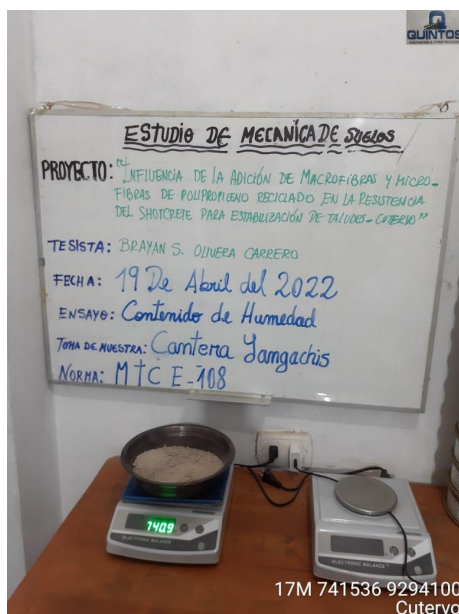 QUINTOS
ESTUDIO DE MECANICA DE SUELOS
PROYECTO: "INFLUENCIA DE LA ADICIÓN DE MACROFIBRAS Y MICRO-
FIBRAS DE POLIPROPILENO RECICLADO EN LA RESISTENCIA
DEL SHOTCRETE PARA ESTABILIZACIÓN DE TALUDES-CUTERVO"
TESISTA: BRAYAN S. OLIVERA CARRERO
FECHA: 19 De Abril del 2022
ENSAYO: Contenido de Humedad
TOMA DE MUESTRA: Cantera Yangachis
NORMA: MTC E-108
740.9
ELECTRONIC BALANCE
ELECTRONIC BALANCE
17M 741536 9294100
Cutervo